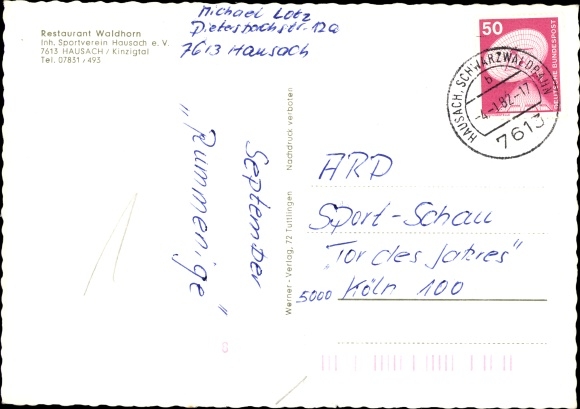 Restaurant Waldhorn
Inh. Sportverein Hausach e. V.
7613 HAUSACH / Kinzigtal
Tel. 07831 / 493
Michael Lotz
Dietersbachstr. 12a
7613 Hausach
50
DEUTSCHE BUNDESPOST
HAUSACH, SCHWARZWALDBAHN
b
-4.-1.82.-17
7613
September
"Rummenige"
Nachdruck verboten
Werner-Verlag, 72 Tuttlingen
ARD
Sport-Schau
"Tor des Jahres"
5000 Köln 100